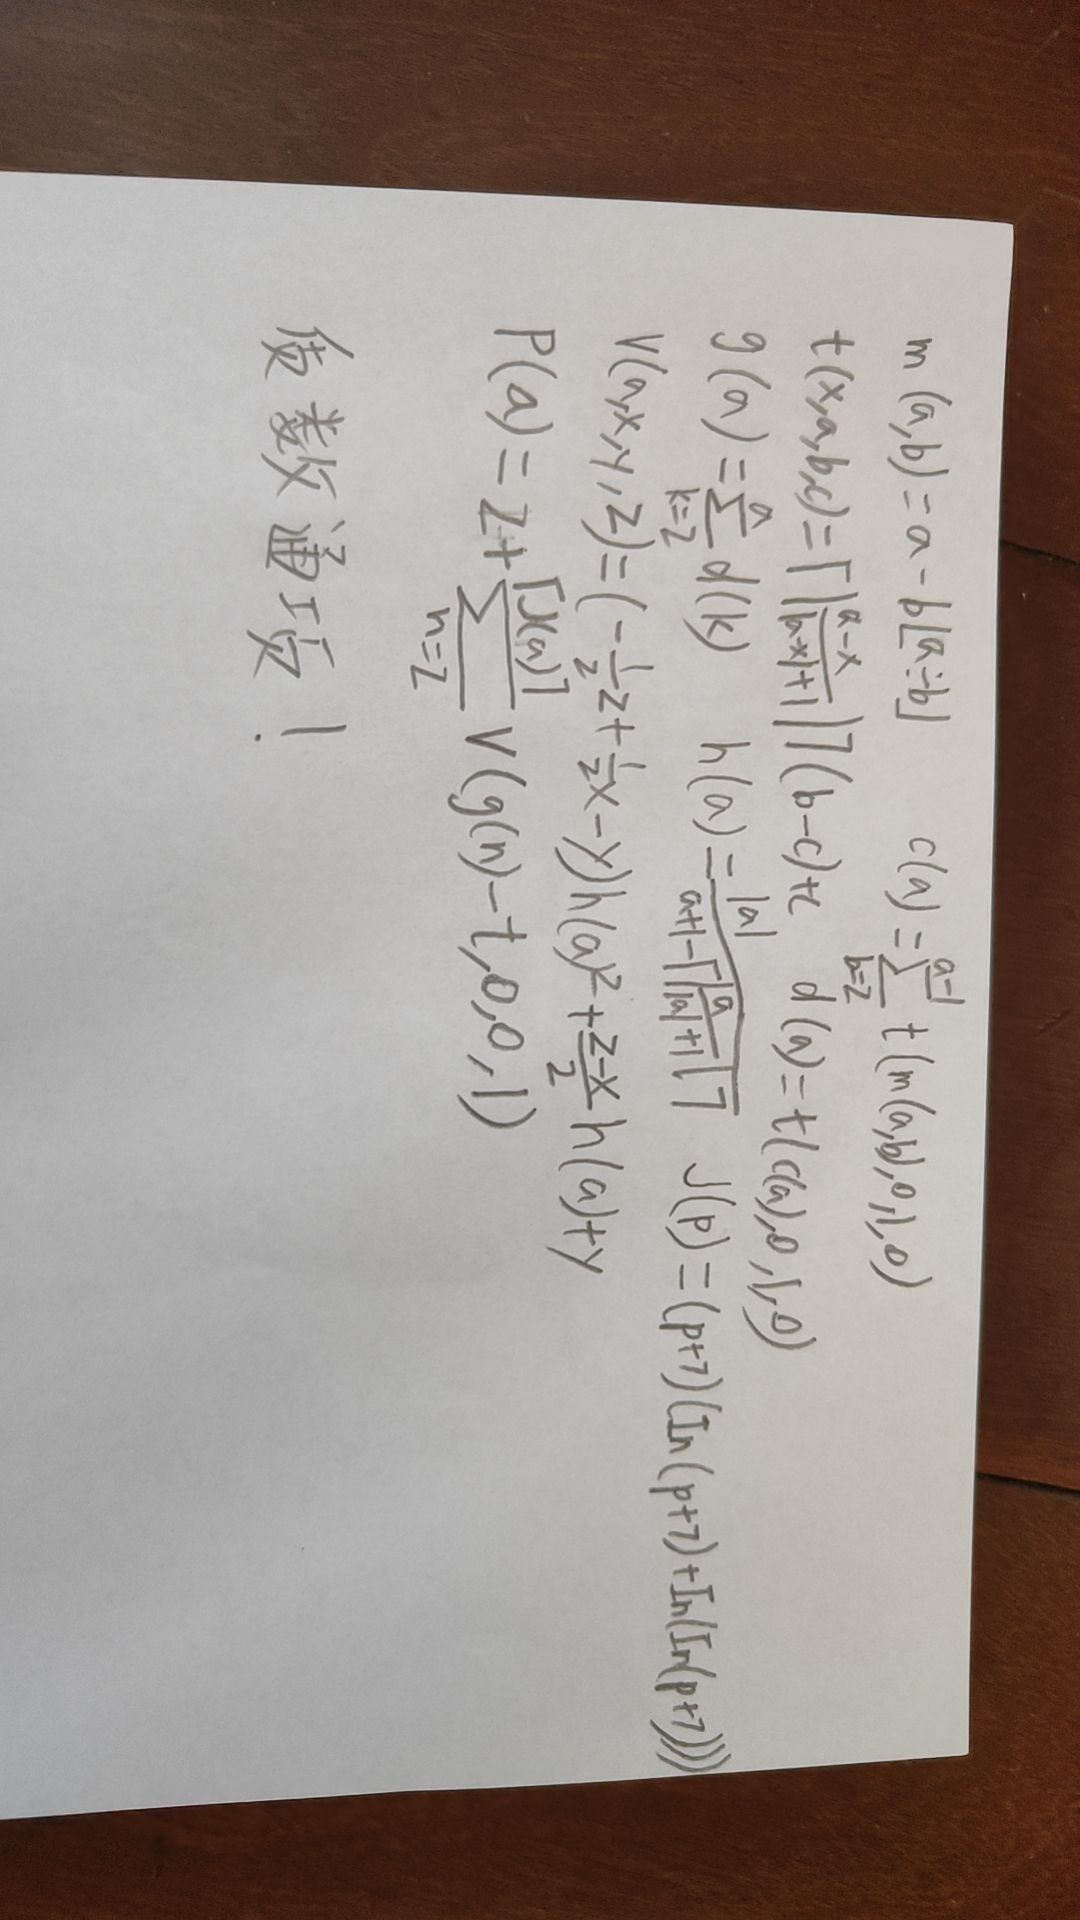 m(a,b)=a-b⌊a÷b⌋ c(a)=∑_{b=2}^{a-1} t(m(a,b),0,1,0)
t(x,a,b,c)=⌈|\frac{a-x}{|a-x|+1}|⌉(b-c)+c d(a)=t(c(a),0,1,0)
g(a)=∑_{k=2}^{a} d(k) h(a)=\frac{|a|}{a+1-⌈|\frac{a}{|a|+1}|⌉} J(p)=(p+7)(In(p+7)+In(In(p+7)))
V(a,x,y,z)=(-\frac{1}{2}z+\frac{1}{2}x-y)h(a)²+\frac{z-x}{2}h(a)+y
P(a)=2+∑_{n=2}^{⌈J(a)⌉} V(g(n)-t,0,0,1)
数通项!